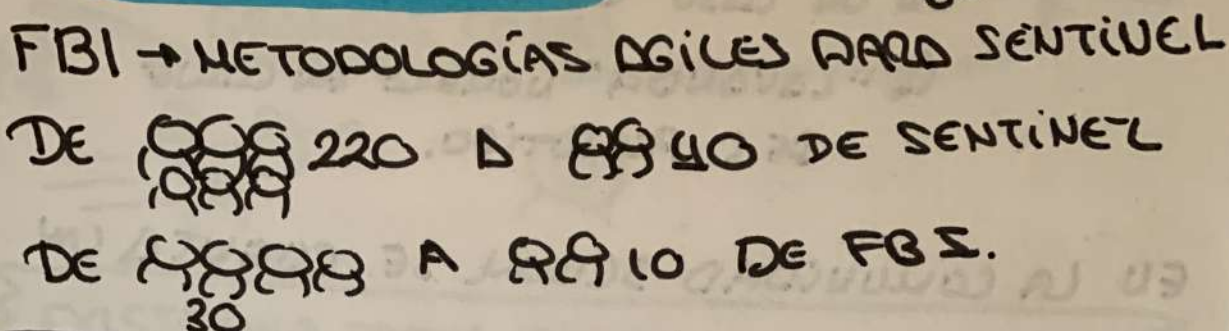 FBI → METODOLOGÍAS AGILES PARA SENTINEL
DE 220 A 40 DE SENTINEL
DE A 10 DE FBI.
30